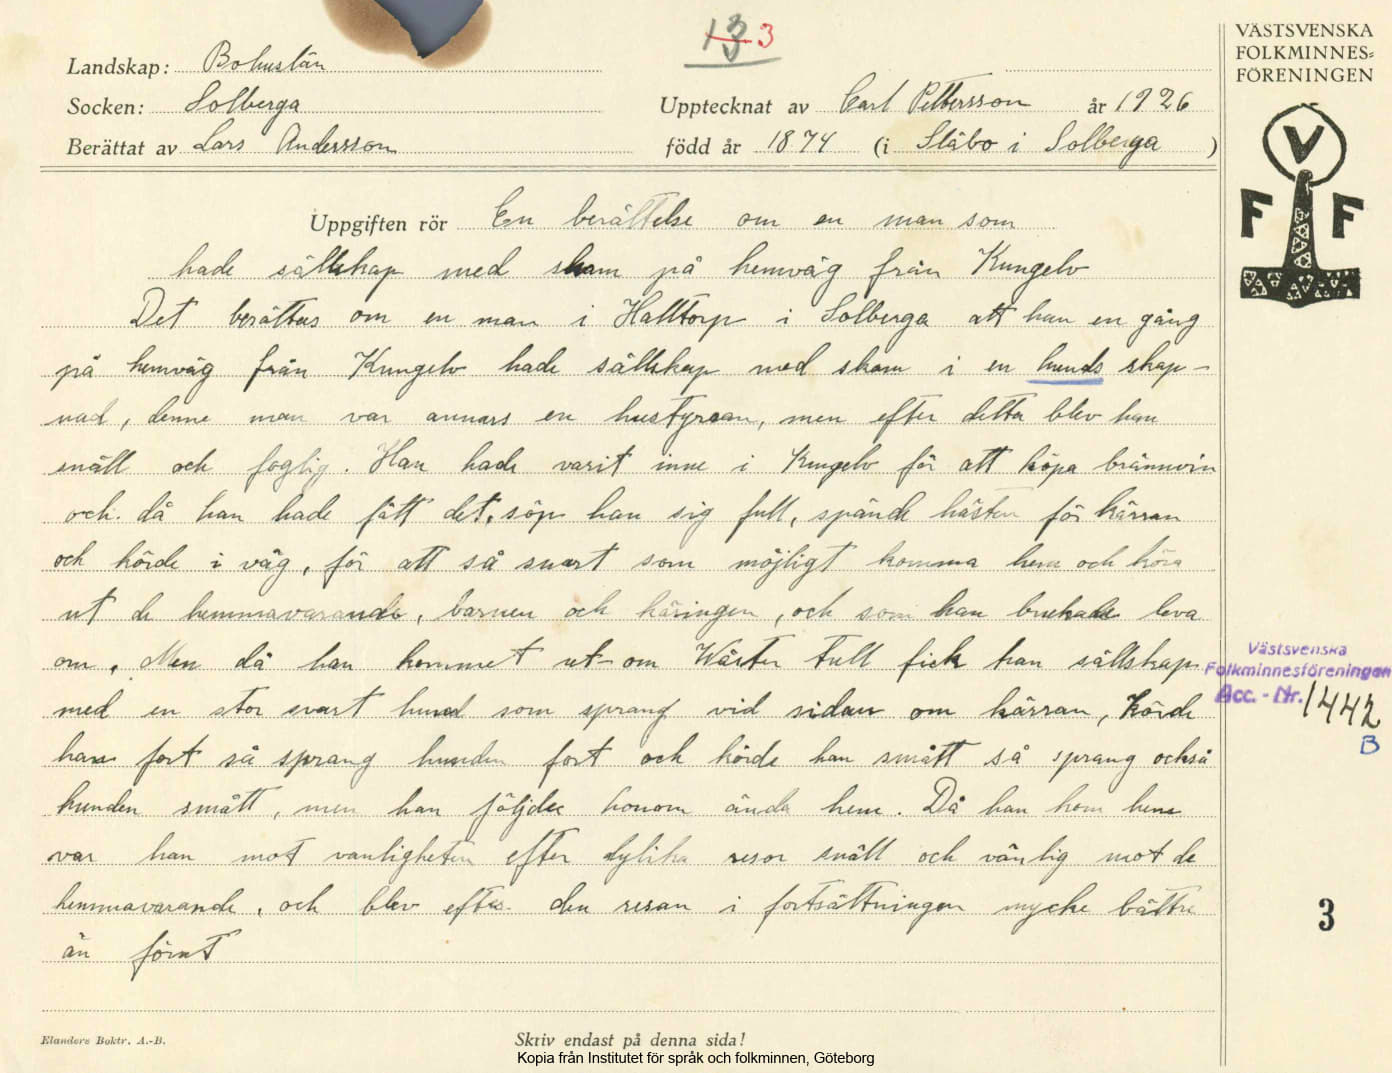 13 3
VÄSTSVENSKA
FOLKMINNES=
FÖRENINGEN
Landskap: Bohuslän
Socken: Solberga
Upptecknat av Carl Pettersson år 1926
Berättat av Lars Andersson
född år 1874 (i Ståbo i Solberga )
V
F F
Uppgiften rör En berättelse om en man som
hade sällskap med skam på hemväg från Kungelv
Det berättas om en man i Halltorp i Solberga att han en gång
på hemväg från Kungelv hade sällskap med skam i en hunds skap-
nad, denne man var annars en hustyrann, men efter detta blev han
snäll och foglig. Han hade varit inne i Kungelv för att köpa brännvin
och då han hade fått det, söp han sig full, spände hästen för kärran
och körde i väg, för att så snart som möjligt komma hem och köra
ut de hemmavarande, barnen och käringen, och som han brukade leva
om. Men då han kommet ut om Wäster tull fick han sällskap
med en stor svart hund som sprang vid sidan om kärran, körde
han fort så sprang hunden fort och körde han smått så sprang också
hunden smått, men han följde honom ända hem. Då han kom hem
var han mot vanligheten efter dylika resor snäll och vänlig mot de
hemmavarande, och blev efter den resan i fortsättningen mycke bättre
än förut
Västsvenska
Folkminnesföreningen
Acc. - Nr. 1442
B
3
Elanders Boktr. A.-B.
Skriv endast på denna sida!
Kopia från Institutet för språk och folkminnen, Göteborg